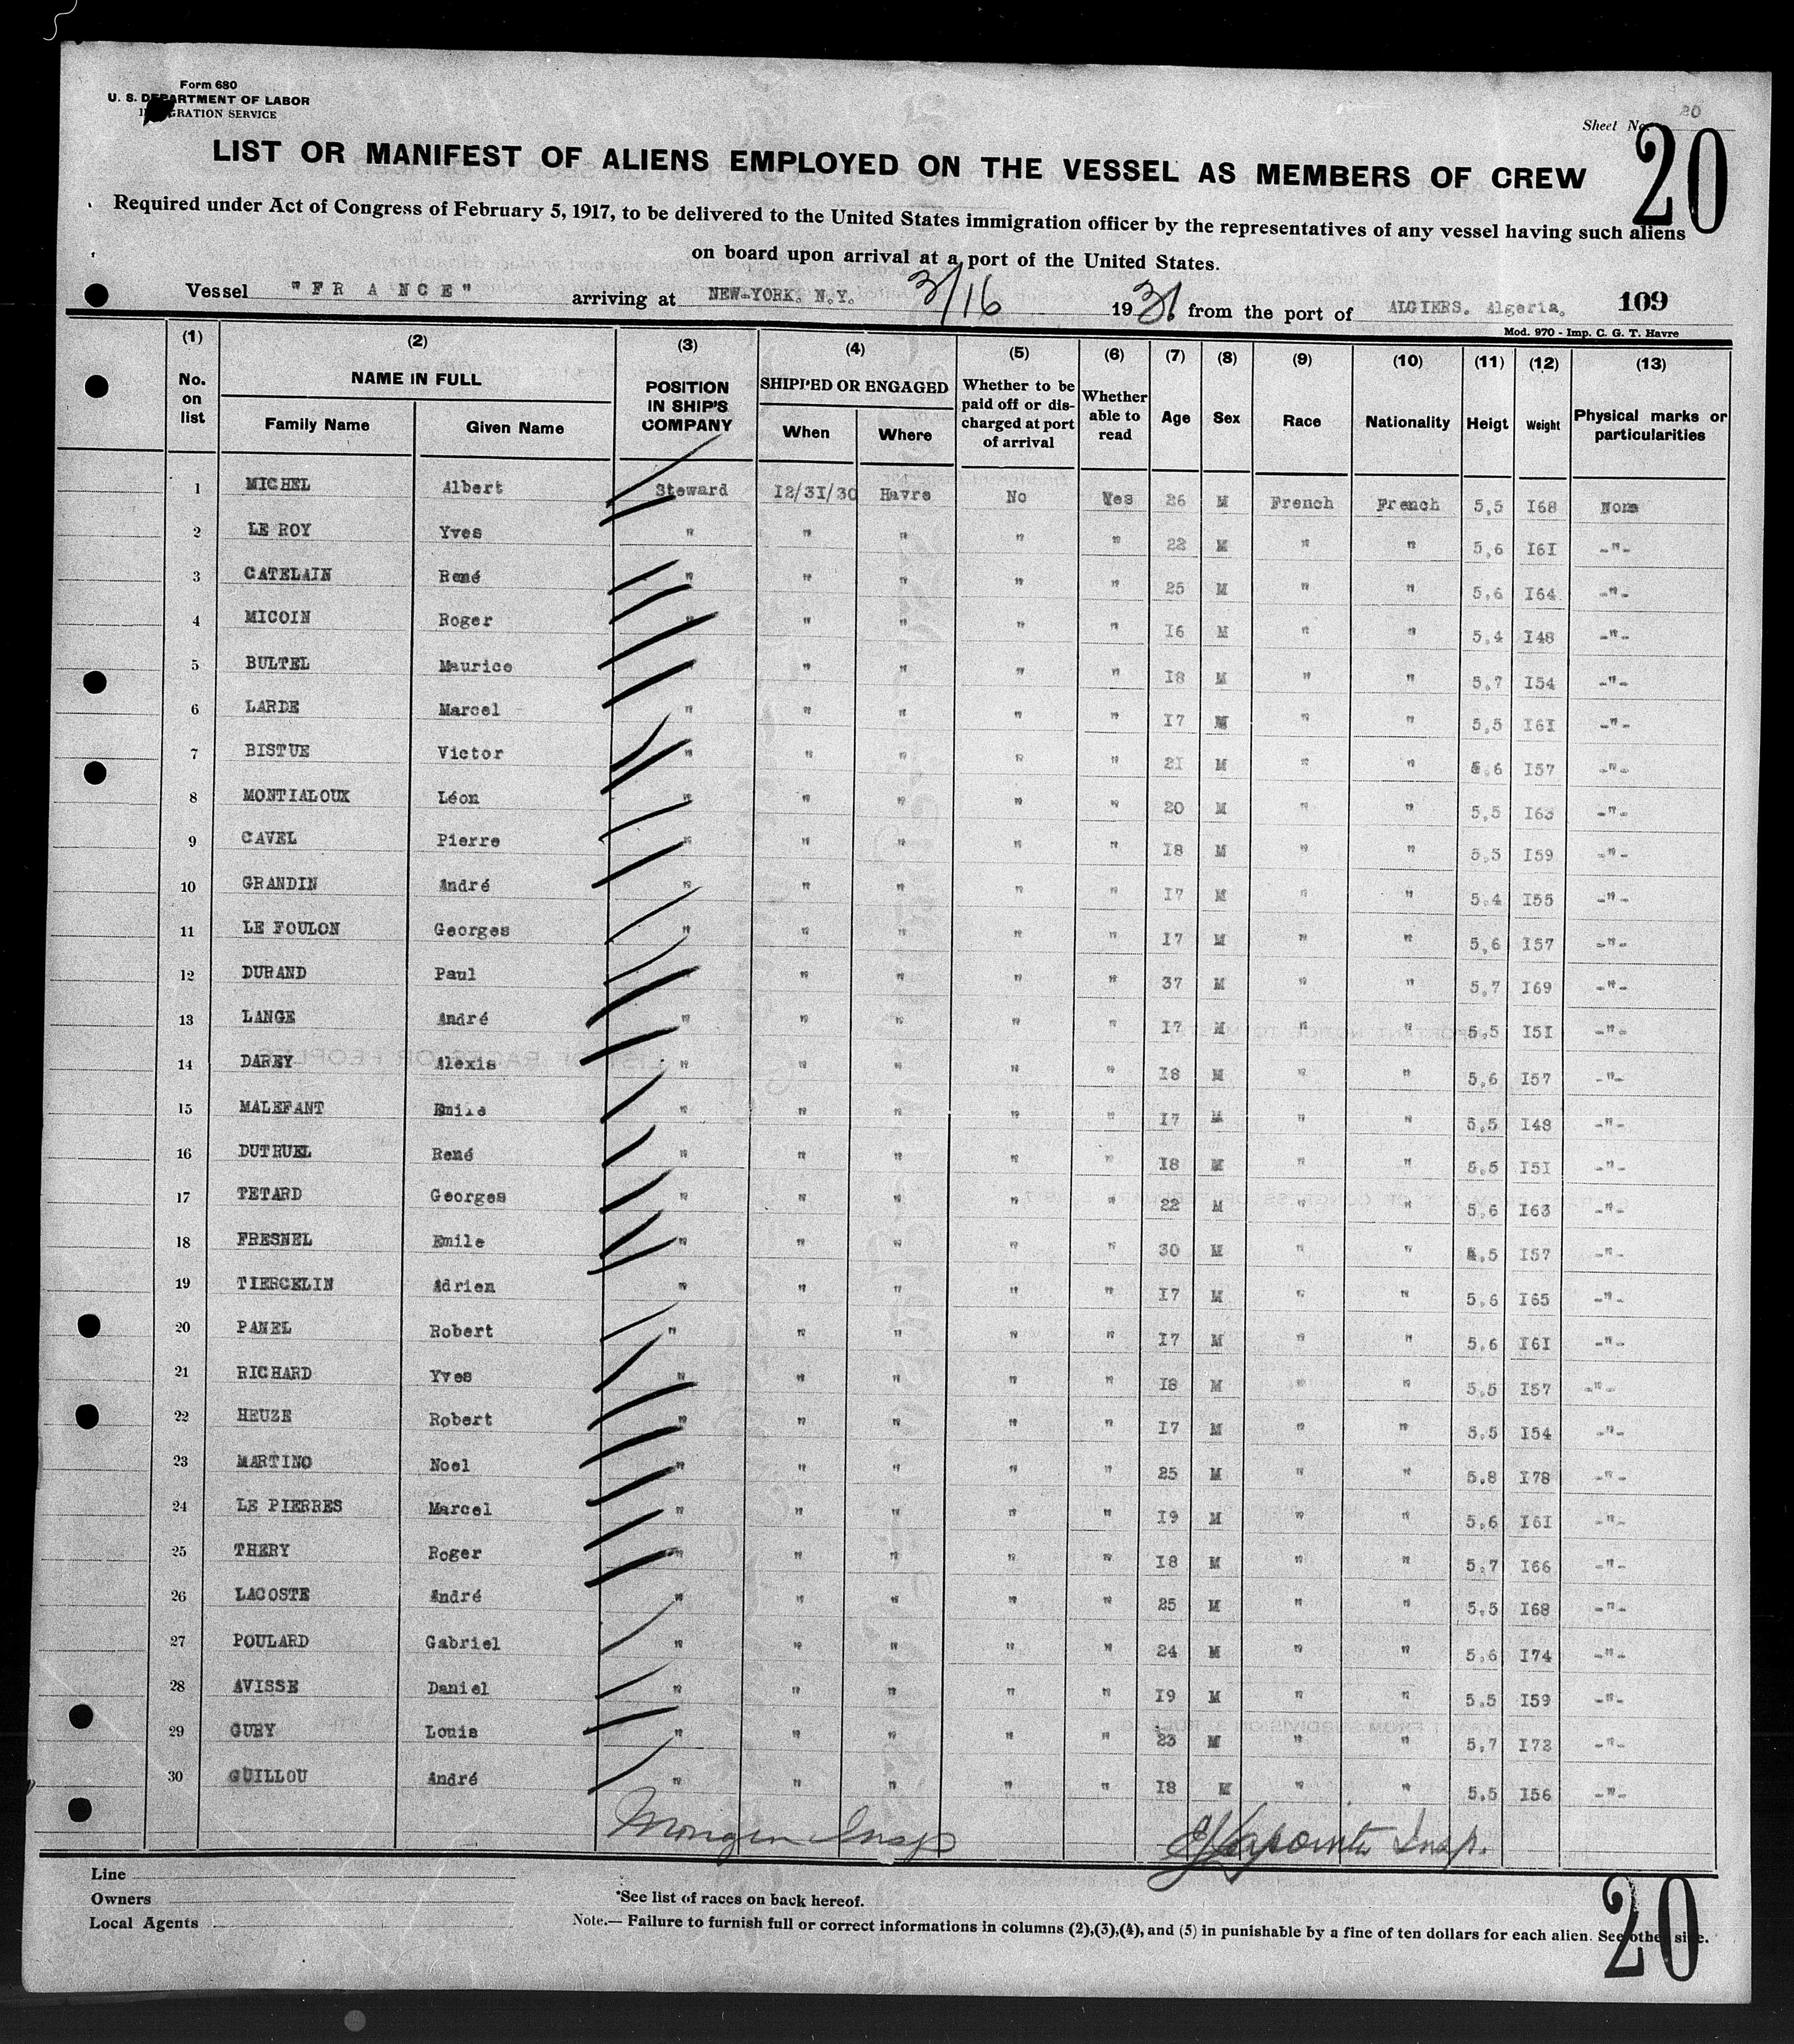 Form 680
U. S. DEPARTMENT OF LABOR
IMMIGRATION SERVICE
20
Sheet No.
20
LIST OR MANIFEST OF ALIENS EMPLOYED ON THE VESSEL AS MEMBERS OF CREW
Required under Act of Congress of February 5, 1917, to be delivered to the United States immigration officer by the representatives of any vessel having such aliens
on board upon arrival at a port of the United States.
Vessel "FRANCE" arriving at NEW-YORK. N.Y. 3/16 1931 from the port of ALGIERS. Algeria. 109
Mod. 970 - Imp. C. G. T. Havre
(1) (2) (3) (4) (5) (6) (7) (8) (9) (10) (11) (12) (13)
No. on list NAME IN FULL Family Name Given Name POSITION IN SHIP'S COMPANY SHIPPED OR ENGAGED When Where Whether to be paid off or discharged at port of arrival Whether able to read Age Sex Race Nationality Heigt Weight Physical marks or particularities
1 MICHEL Albert Steward 12/31/30 Havre No Yes 26 M French French 5,5 I68 None
2 LE ROY Yves " " " " " 22 M " " 5,6 I6I -"-
3 CATELAIN René " " " " " 25 M " " 5,6 I64 -"-
4 MICOIN Roger " " " " " I6 M " " 5,4 I48 -"-
5 BULTEL Maurice " " " " I8 M " " 5,7 I54 -"-
6 LARDE Marcel " " " " " I7 M " " 5,5 I6I -"-
7 BISTUE Victor " " " " " 2I M " " 5,6 I57 -"-
8 MONTIALOUX Léon " " " " " 20 M " " 5,5 I63 -"-
9 CAVEL Pierre " " " " " I8 M " " 5,5 I59 -"-
10 GRANDIN André " " " " " I7 M " " 5,4 I55 -"-
11 LE FOULON Georges " " " " " I7 M " " 5,6 I57 -"-
12 DURAND Paul " " " " " 37 M " " 5,7 I69 -"-
13 LANGE André " " " " " I7 M " " 5,5 I5I -"-
14 DAREY Alexis " " " " " I8 M " " 5,6 I57 -"-
15 MALEFANT Emile " " " " " I7 M " " 5,5 I48 -"-
16 DUTRUEL René " " " " " I8 M " " 5,5 I5I -"-
17 TETARD Georges " " " " " 22 M " " 5,6 I63 -"-
18 FRESNEL Emile " " " " " 30 M " " 5,5 I57 -"-
19 TIERCELIN Adrien " " " " " I7 M " " 5,6 I65 -"-
20 PANEL Robert " " " " " I7 M " " 5,6 I6I -"-
21 RICHARD Yves " " " " " I8 M " " 5,5 I57 -"-
22 HEUZE Robert " " " " " I7 M " " 5,5 I54 -"-
23 MARTINO Noel " " " " " 25 M " " 5,8 I78 -"-
24 LE PIERRES Marcel " " " " " I9 M " " 5,6 I6I -"-
25 THERY Roger " " " " " I8 M " " 5,7 I66 -"-
26 LACOSTE André " " " " " 25 M " " 5,5 I68 -"-
27 POULARD Gabriel " " " " " 24 M " " 5,6 I74 -"-
28 AVISSE Daniel " " " " " I9 M " " 5,5 I59 -"-
29 GUEY Louis " " " " " 23 M " " 5,7 I72 -"-
30 GUILLOU André " " " " " I8 M " " 5,5 I56 -"-
Insp Lapointe Insp.
Line
Owners
Local Agents
*See list of races on back hereof.
Note.— Failure to furnish full or correct informations in columns (2),(3),(4), and (5) in punishable by a fine of ten dollars for each alien. See other side.
20